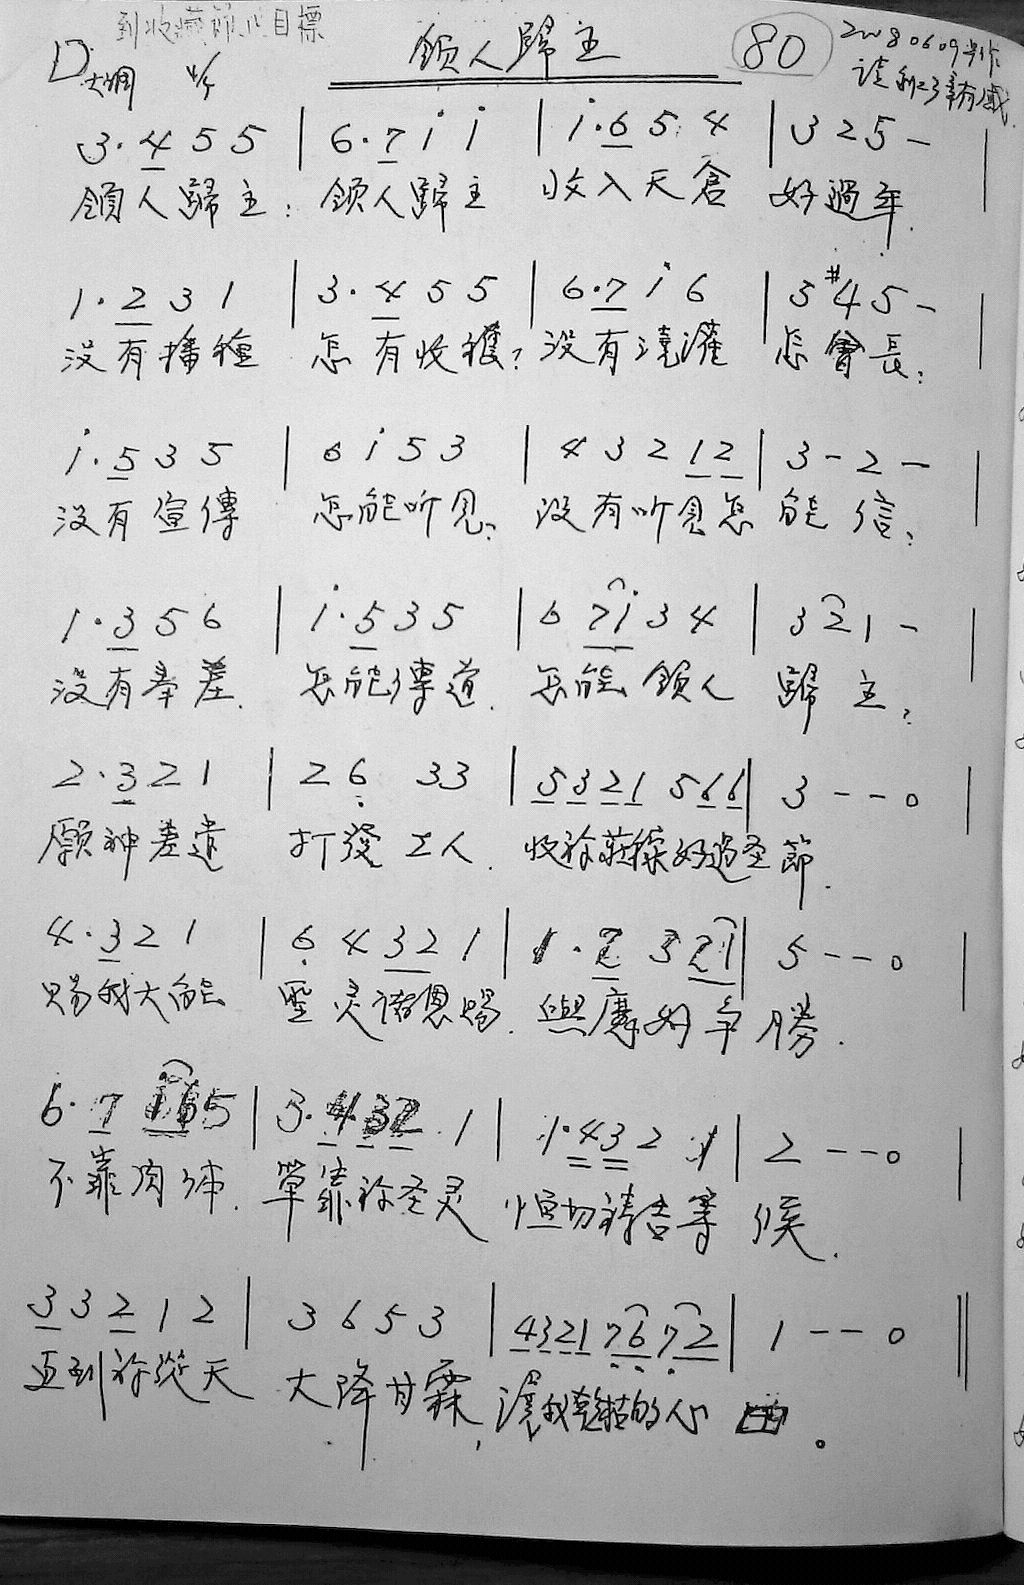 到收藏節心目標
D大調 4/4 領人歸主 80 20080609
3·4 5 5 | 6·7 i i | i·6 5 4 | 3 2 5 — |
領人歸主: 領人歸主 收入天倉 好過年.
1·2 3 1 | 3·4 5 5 | 6·7 i 6 | 3 #4 5 — |
沒有播種 怎有收穫? 沒有澆灌 怎會長?
i·5 3 5 | 6 i 5 3 | 4 3 2 1 2 | 3 — 2 — |
沒有宣傳 怎能听見? 沒有听見怎能信?
1·3 5 6 | i·5 3 5 | 6 7 i 3 4 | 3 2 1 — |
沒有奉差. 怎能傳道. 怎能領人 歸主?
2·3 2 1 | 2 6 3 3 | 5 3 2 1 5 6 6 | 3 — — 0 |
願神差遣 打發工人. 收祢莊稼好過圣節.
4·3 2 1 | 6 4 3 2 1 | 1·2 3 2 1 | 5 — — 0 |
賜我大能 聖灵諸恩賜. 與魔好爭勝.
6·7 i 6 5 | 3·4 3 2 1 | 1·4 3 2 1 | 2 — — 0 |
不靠肉体. 單靠祢圣灵 恒切禱告等候.
3 3 2 1 2 | 3 6 5 3 | 4 3 2 1 7 6 7 2 | 1 — — 0 ||
直到祢從天 大降甘霖, 讓我乾枯的心田。